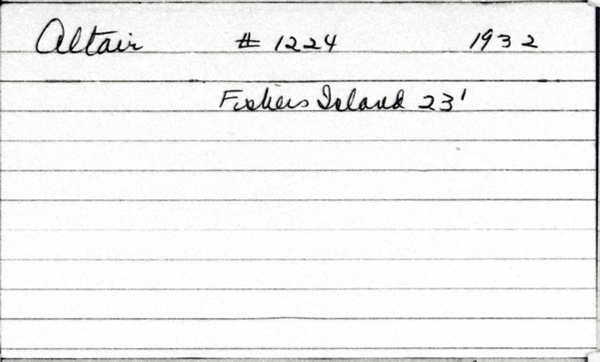 Altair # 1224 1932
Fishers Island 23'